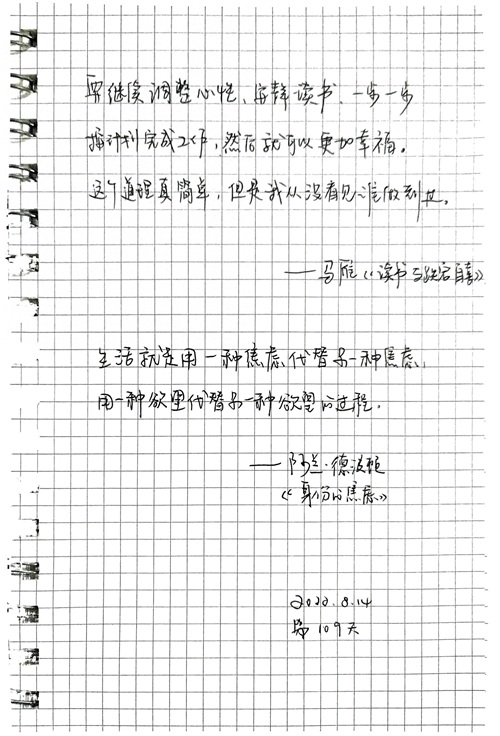 要继续调整心性、安静读书、一步一步
按计划完成工作，然后就可以更加幸福。
这个道理真简单，但是我从没看见谁做到过。
——马雁《读书与跌宕自喜》
生活就是用一种焦虑代替另一种焦虑，
用一种欲望代替另一种欲望的过程。
——阿兰·德波顿
《身份的焦虑》
2022.8.14
第109天